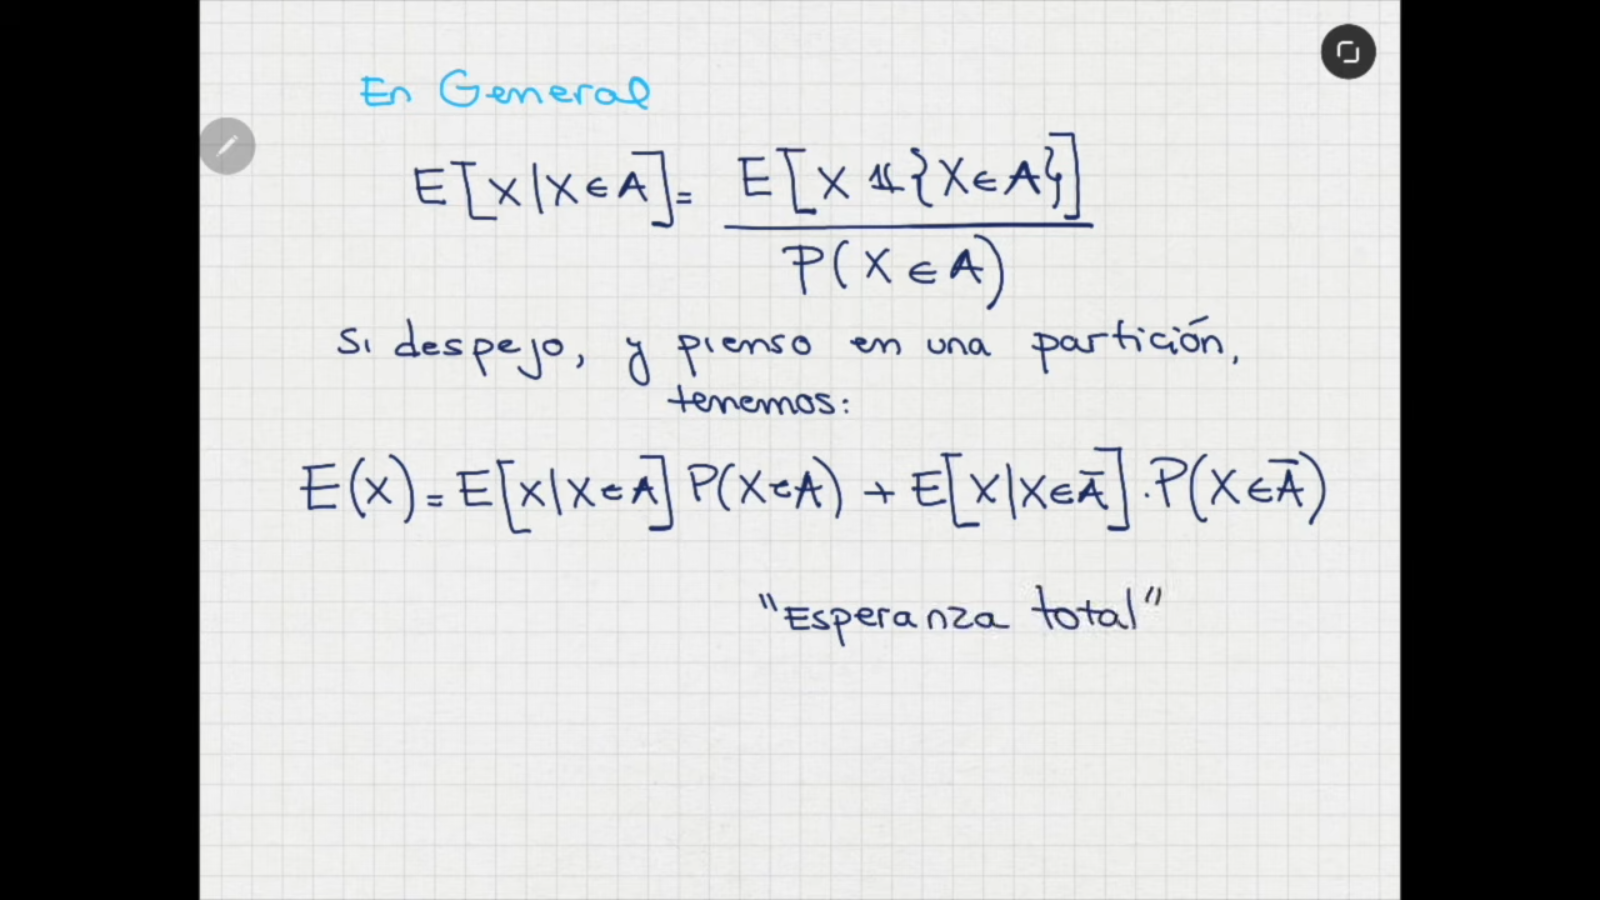 En General
E[X|X∈A] = E[X 𝟙{X∈A}]
P(X∈A)
Si despejo, y pienso en una partición,
tenemos:
E(X) = E[X|X∈A] P(X∈A) + E[X|X∈Ā] . P(X∈Ā)
"Esperanza total"